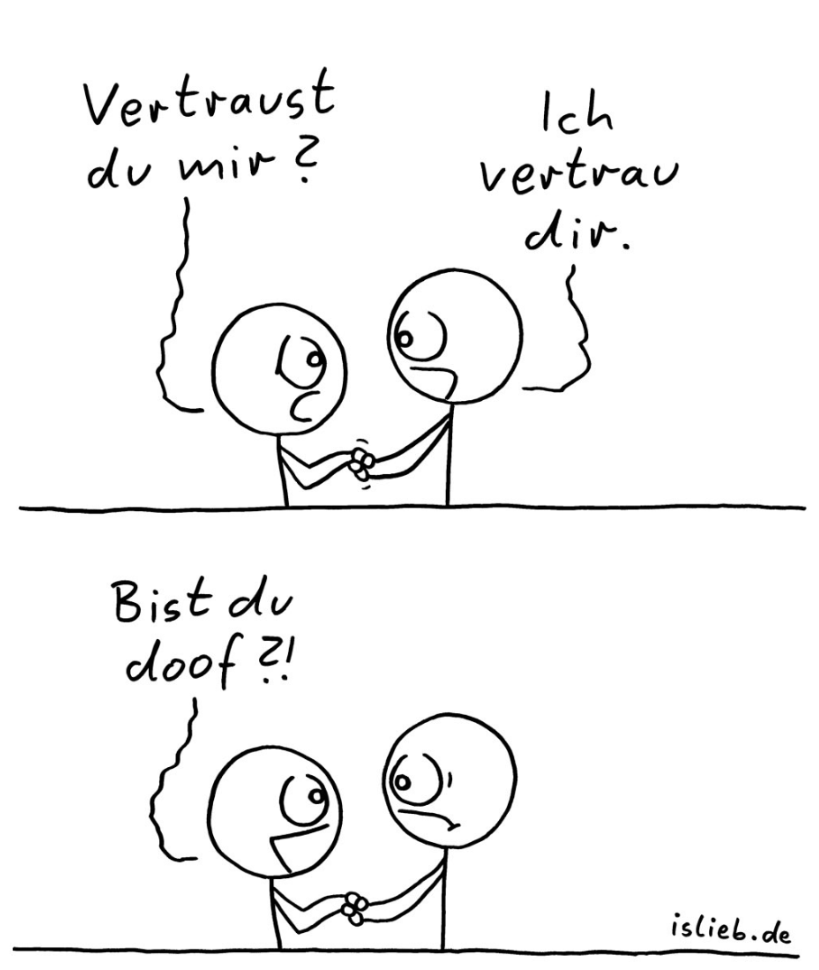 Vertraust
du mir?
Ich
vertrau
dir.
Bist du
doof?!
islieb.de